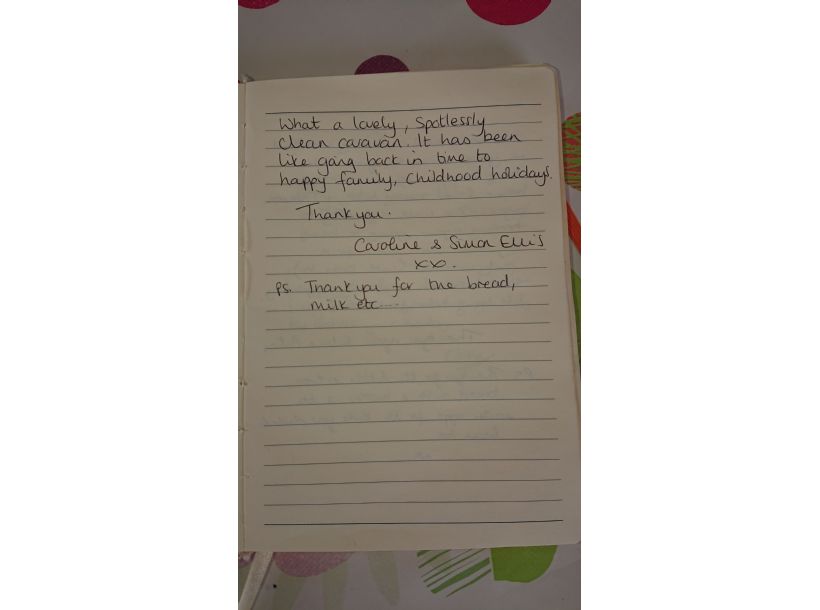 What a lovely, spotlessly
clean caravan. It has been
like going back in time to
happy family, childhood holidays.
Thank you.
Caroline & Simon Ellis
xx.
Ps. Thank you for the bread,
milk etc....